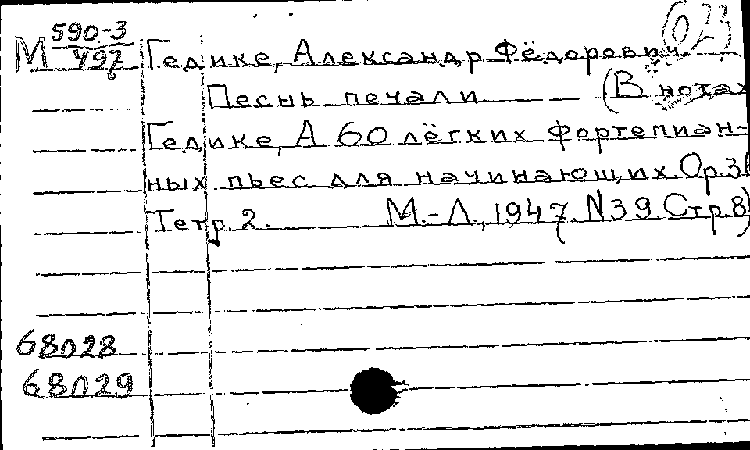 623
М 590-3
V97
Гедике, Александр Фёдорович.
Песнь печали (В нотах
Гедике, А 60 лёгких фортепиан-
ных пьес для начинающих. Ор.36
Тетр. 2. М.-Л., 1947. N39 Стр.8)
68028
68029